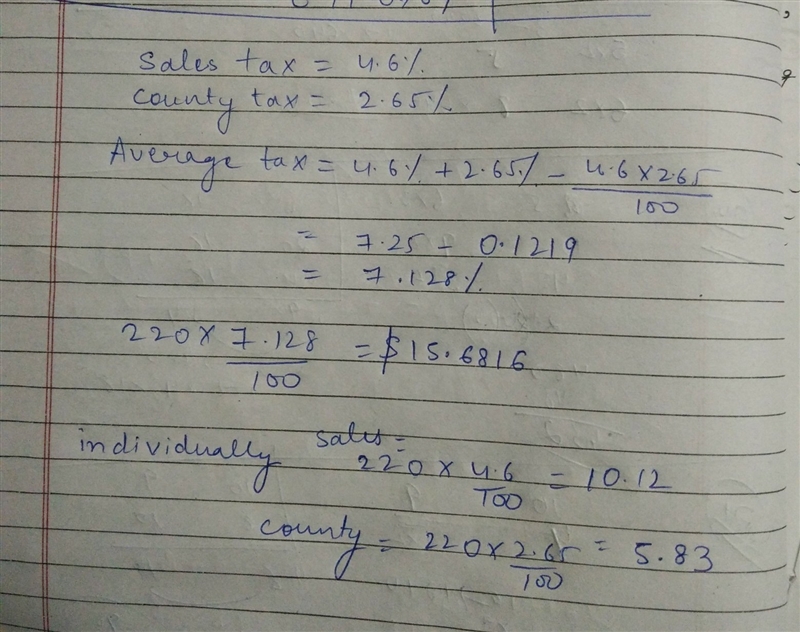 Sales tax = 4.6%
County tax = 2.65%
Average tax = 4.6% + 2.65% - 4.6 x 2.65 / 100
= 7.25 - 0.1219
= 7.128%
220 x 7.128 / 100 = $15.6816
individually sales =
220 x 4.6 / 100 = 10.12
county = 220 x 2.65 / 100 = 5.83